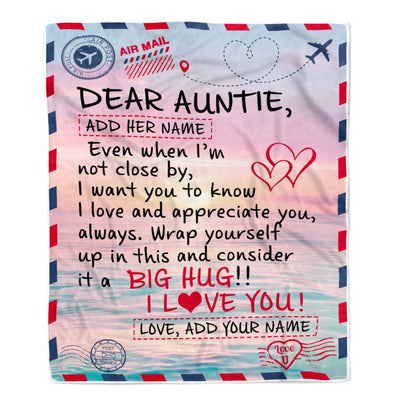 AIR MAIL
DEAR AUNTIE,
ADD HER NAME
Even when I'm
not close by,
I want you to know
I love and appreciate you,
always. Wrap yourself
up in this and consider
it a BIG HUG!!
I L❤VE YOU!
LOVE, ADD YOUR NAME
Love
U